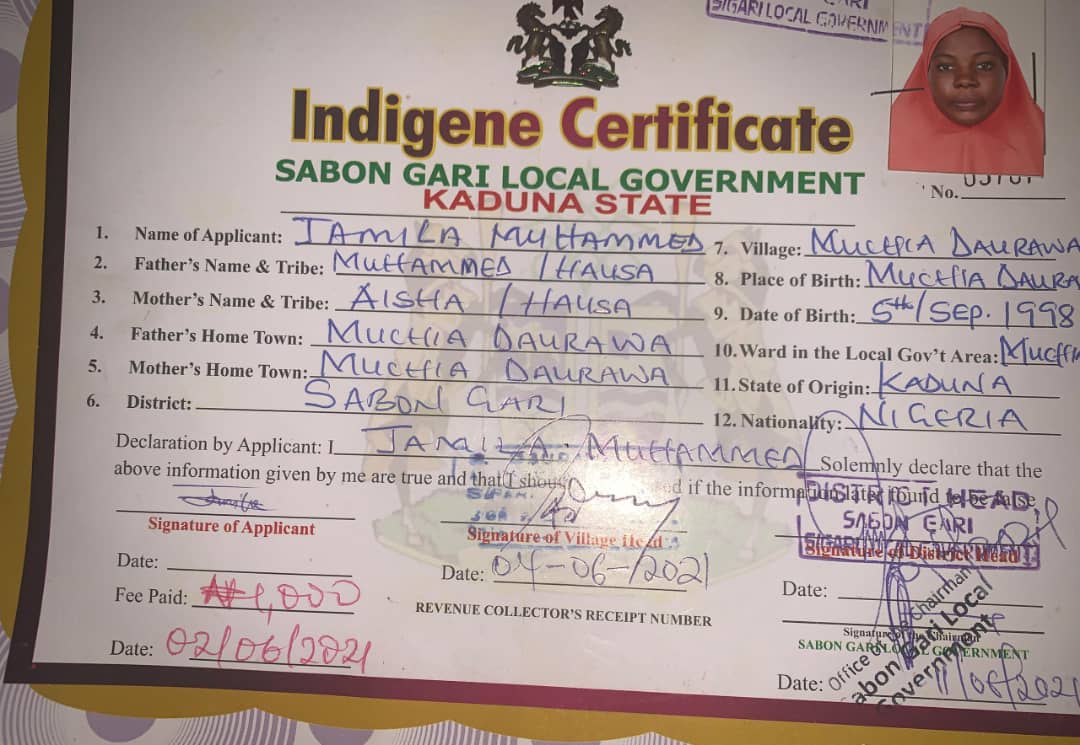 SIGARI LOCAL GOVERNMENT
Indigene Certificate
SABON GARI LOCAL GOVERNMENT
KADUNA STATE
No.
1. Name of Applicant: JAMILA MUHAMMED
2. Father's Name & Tribe: MUHAMMED / HAUSA
3. Mother's Name & Tribe: AISHA / HAUSA
4. Father's Home Town: MUCHIA DAURAWA
5. Mother's Home Town: MUCHIA DAURAWA
6. District: SABON GARI
7. Village: MUCHIA DAURAWA
8. Place of Birth: MUCHIA DAURA
9. Date of Birth: 5th/SEP. 1998
10. Ward in the Local Gov't Area: MUCHI
11. State of Origin: KADUNA
12. Nationality: NIGERIA
Declaration by Applicant: I JAMILA MUHAMMED Solemnly declare that the
above information given by me are true and that I shou d if the information later found to be false
Signature of Applicant
Date:
Fee Paid: ₦1,000
Date: 02/06/2021
Signature of Village Head
Date: 04-06-2021
REVENUE COLLECTOR'S RECEIPT NUMBER
DISTRICT HEAD
SABON GARI
Signature of District Head
Date:
Signature of the Chairman
SABON GARI LOCAL GOVERNMENT
Office of the Chairman
Sabon Gari Local
Government
Date: 11/06/2021